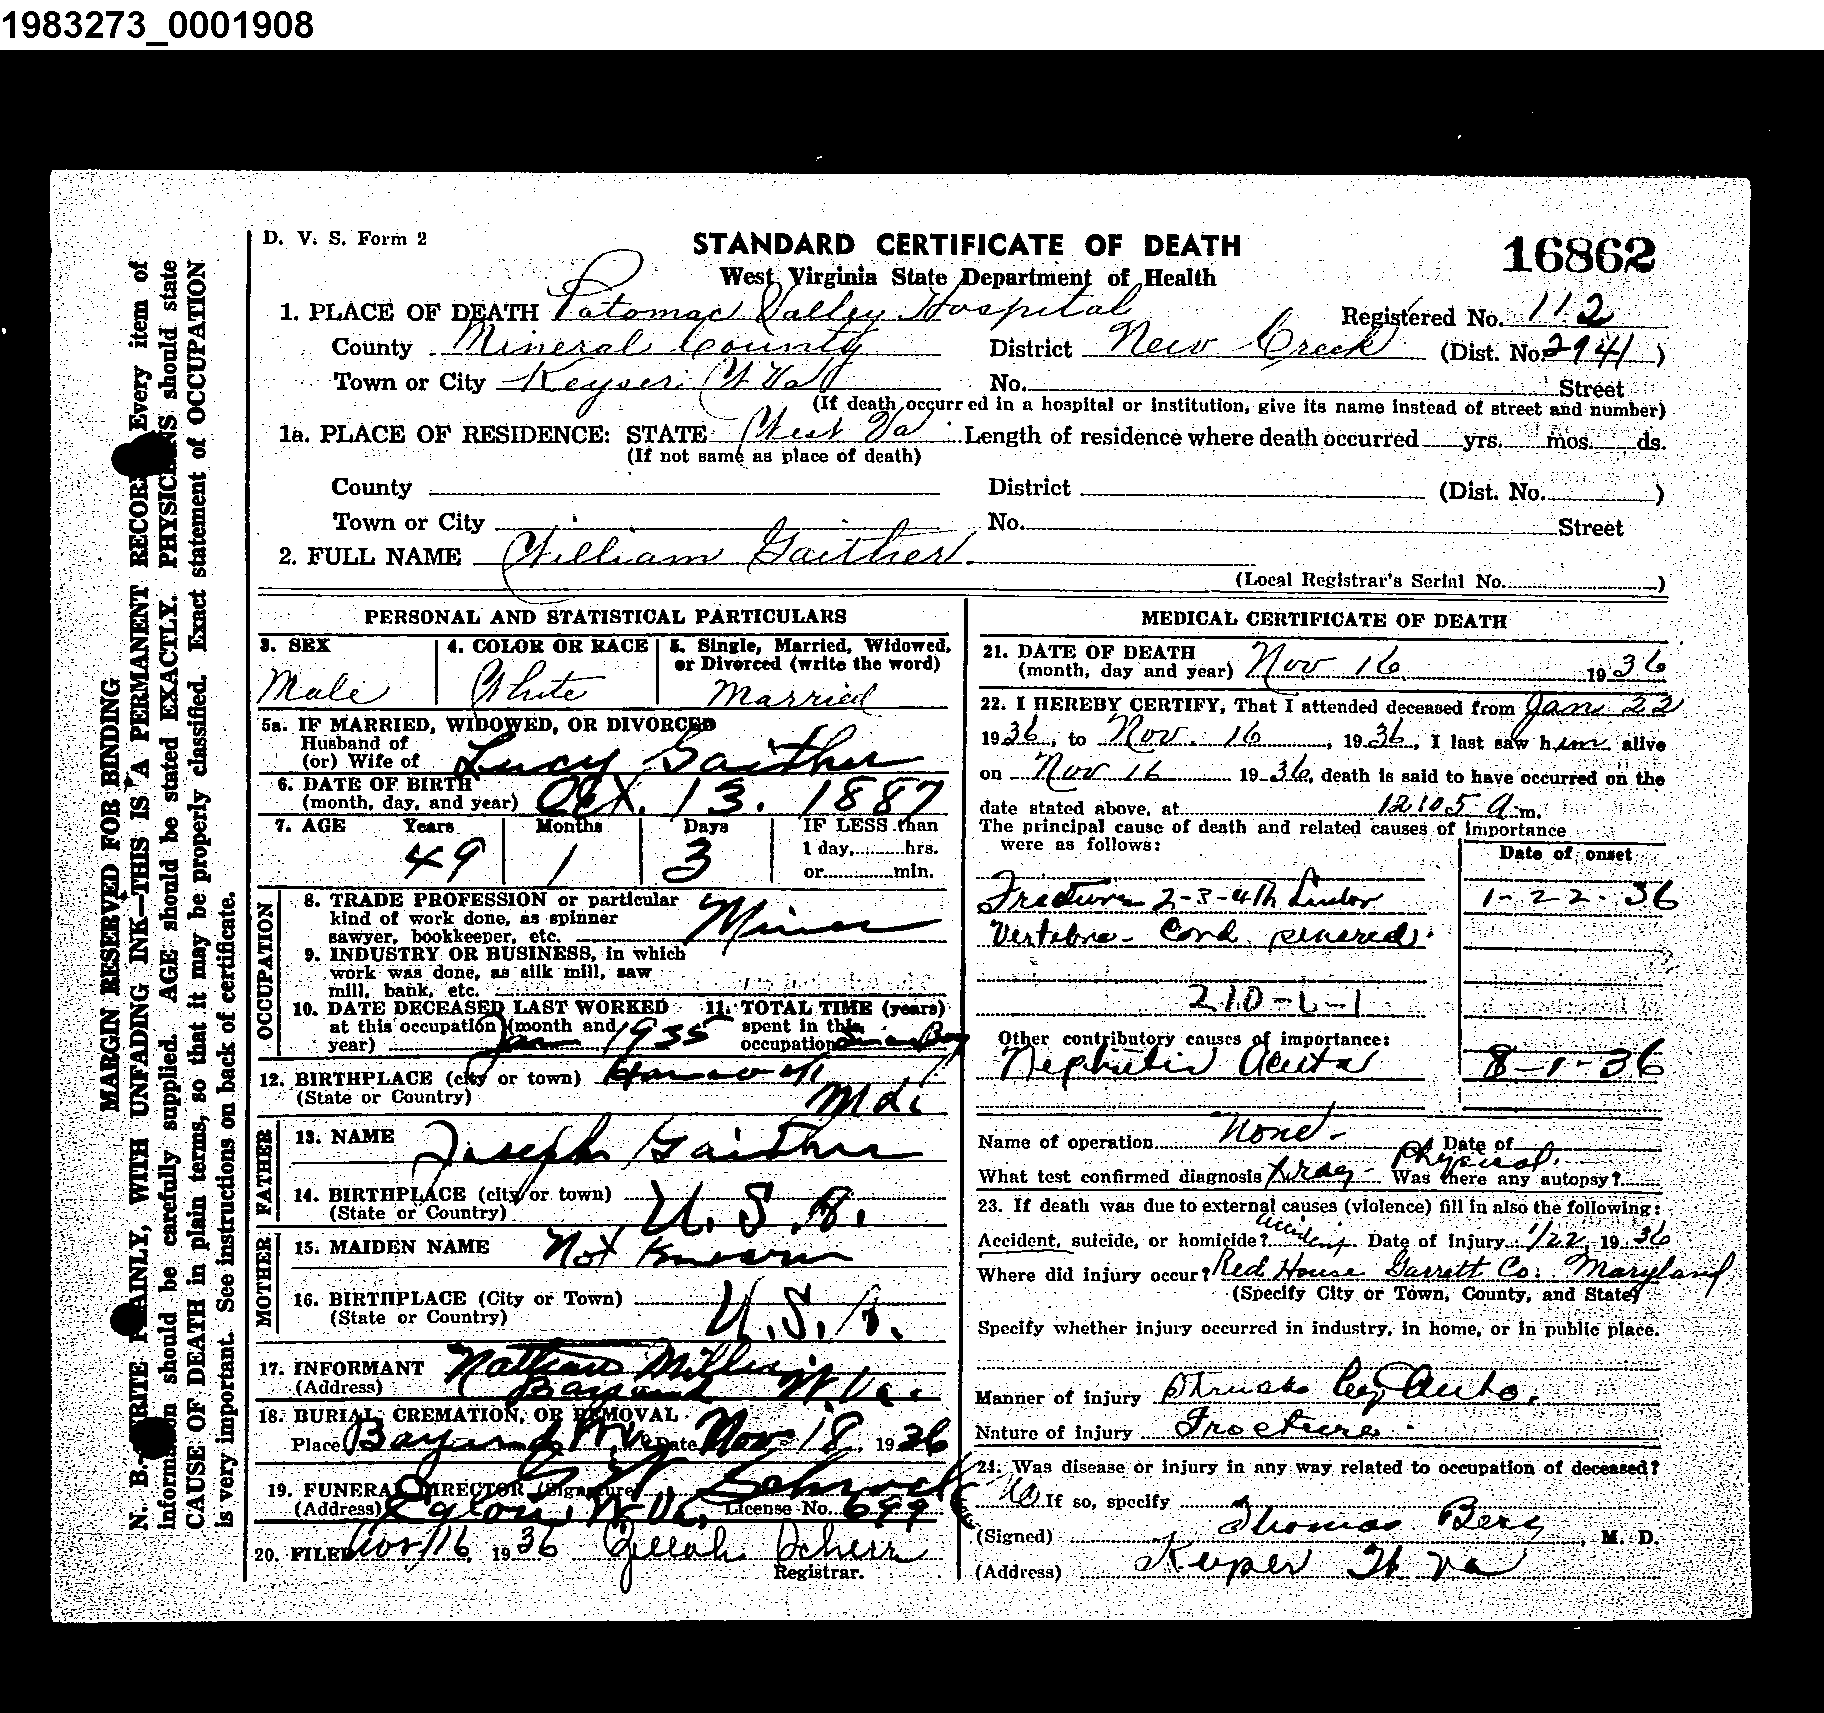 1983273_0001908
D. V. S. Form 2
STANDARD CERTIFICATE OF DEATH
16862
West Virginia State Department of Health
1. PLACE OF DEATH Potomac Valley Hospital
Registered No. 112
County Mineral County District New Creek (Dist. No. 2941)
Town or City Keyser W Va No. Street
(If death occurred in a hospital or institution, give its name instead of street and number)
1a. PLACE OF RESIDENCE: STATE West Va Length of residence where death occurred yrs. mos. ds.
(If not same as place of death)
County District (Dist. No. )
Town or City No. Street
2. FULL NAME William Gaither
(Local Registrar's Serial No. )
MARGIN RESERVED FOR BINDING
N. B.—WRITE PLAINLY, WITH UNFADING INK—THIS IS A PERMANENT RECORD. Every item of
information should be carefully supplied. AGE should be stated EXACTLY. PHYSICIANS should state
CAUSE OF DEATH in plain terms, so that it may be properly classified. Exact statement of OCCUPATION
is very important. See instructions on back of certificate.
PERSONAL AND STATISTICAL PARTICULARS
3. SEX
Male
4. COLOR OR RACE
White
5. Single, Married, Widowed,
or Divorced (write the word)
Married
5a. IF MARRIED, WIDOWED, OR DIVORCED
Husband of
(or) Wife of Lucy Gaither
6. DATE OF BIRTH
(month, day, and year) Oct. 13. 1887
7. AGE Years Months Days IF LESS than
49 1 3 1 day, hrs.
or min.
OCCUPATION
8. TRADE PROFESSION or particular
kind of work done, as spinner
sawyer, bookkeeper, etc. Miner
9. INDUSTRY OR BUSINESS, in which
work was done, as silk mill, saw
mill, bank, etc.
10. DATE DECEASED LAST WORKED
at this occupation (month and
year) Jan 1935
11. TOTAL TIME (years)
spent in this
occupation Boy
12. BIRTHPLACE (city or town)
(State or Country) Md.
FATHER
13. NAME Joseph Gaither
14. BIRTHPLACE (city or town)
(State or Country) U. S. A.
MOTHER
15. MAIDEN NAME Not Known
16. BIRTHPLACE (City or Town)
(State or Country) U. S. A.
17. INFORMANT Nathan
(Address) Bayard W. Va.
18. BURIAL, CREMATION, OR REMOVAL
Place Bayard W. Va Date Nov 18, 1936
19. FUNERAL DIRECTOR (Signature) Schrock
(Address) Eglon, W. Va. License No. 699
20. FILED Nov 16, 1936 Zillah Scherr
Registrar.
MEDICAL CERTIFICATE OF DEATH
21. DATE OF DEATH
(month, day and year) Nov 16 1936
22. I HEREBY CERTIFY, That I attended deceased from Jan 22
1936, to Nov. 16, 1936, I last saw him alive
on Nov 16 1936, death is said to have occurred on the
date stated above, at 12105 a.m.
The principal cause of death and related causes of importance
were as follows:
Date of onset
Fracture 2-3-4th 1-22-36
Vertebra - Cord
210-L-1
Other contributory causes of importance:
Nephritis Acuta 8-1-36
Name of operation None - Date of
What test confirmed diagnosis Xray - Physical. Was there any autopsy?
23. If death was due to external causes (violence) fill in also the following:
Accident, suicide, or homicide? Accident. Date of injury 1/22, 1936
Where did injury occur? Red House Garrett Co. Maryland
(Specify City or Town, County, and State)
Specify whether injury occurred in industry, in home, or in public place.
Manner of injury Struck by Auto.
Nature of injury Fracture
24. Was disease or injury in any way related to occupation of deceased?
No If so, specify
(Signed) Thomas Bess, M. D.
(Address) Keyser W Va